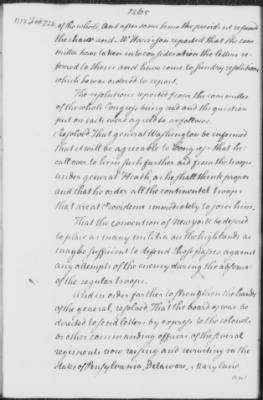 1265
of the whole, and after some time the president resumed
the chair and Mr Harrison reported that the com
mittee have taken into consideration the letters re
ferred to them and have come to sundry resolutions
which he was ordered to report.
The resolutions reported from the committee
of the whole Congress being read and the question
put on each were agreed to as follows.
Resolved That general Washington be informed
that it will be agreeable to Congress that he
call over to him such further aid from the troops
under general Heath as he shall think proper
and that he order all the continental troops
that are at Providence immediately to join him.
That the convention of New york be desired
to place as many militia on the highlands as
may be sufficient to defend those passes, against
any attempts of the enemy during the absence
of the regular troops.
And in order farther to strengthen the hands
of the general, resolved, That the board of war be
directed to send letters by express to the colonels
or other commanding officers of the several
regiments now raising and recruiting in the
states of Pensylvania, Delaware, Maryland